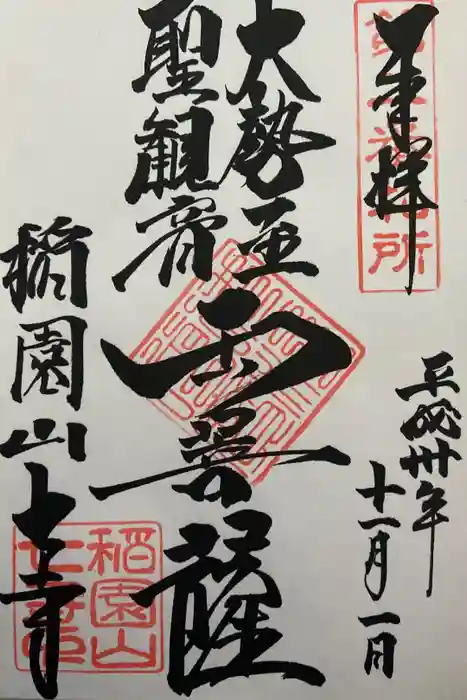 奉拝
平成卅年
十一月一日
大勢至
聖観音
両菩薩
稲園山七寺
稲園山
七寺印